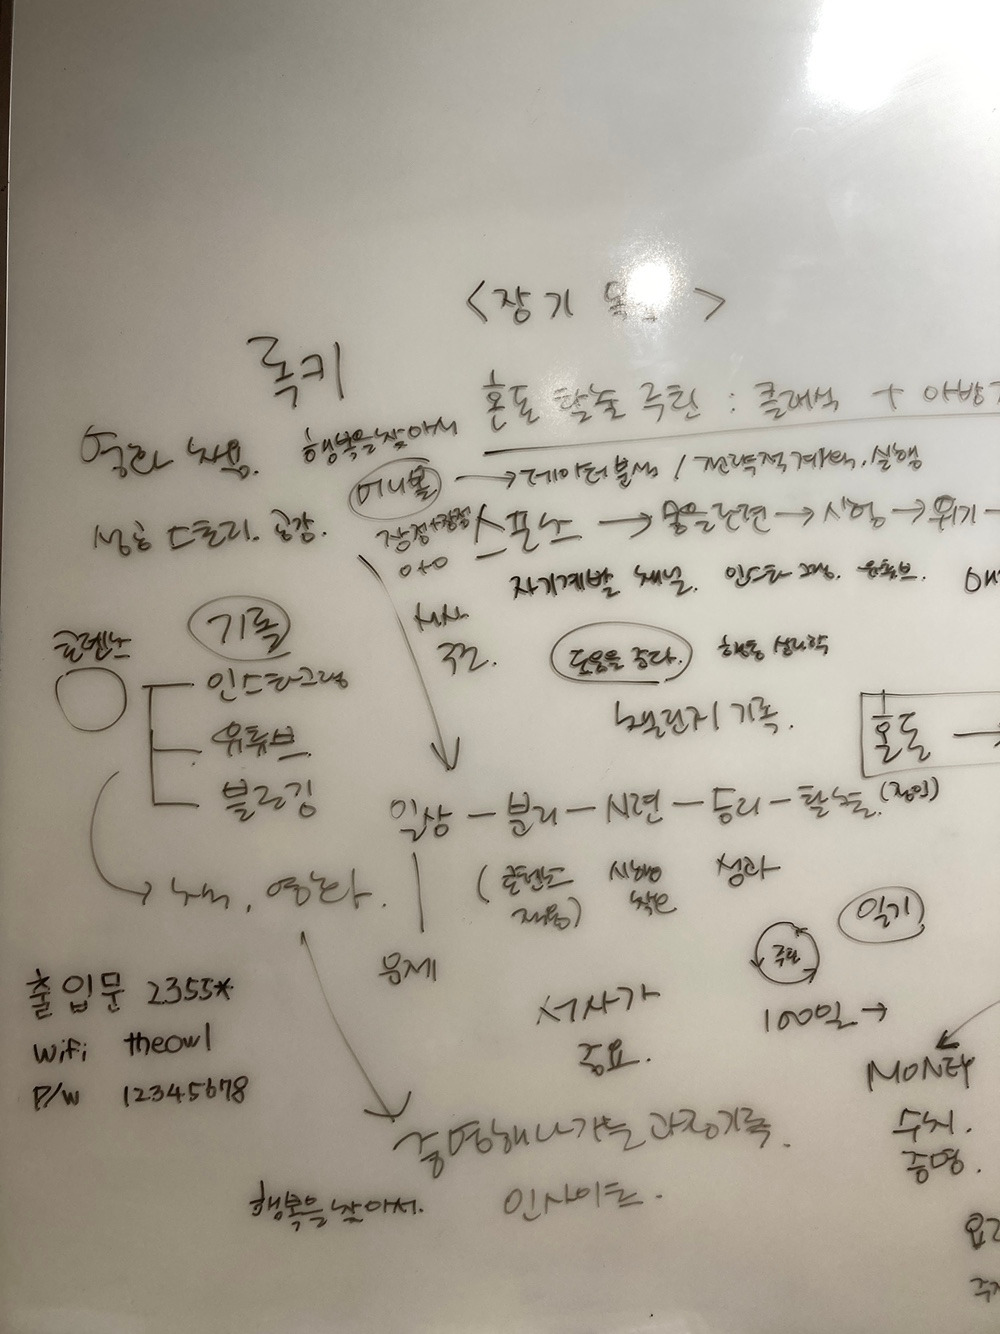 <장기
록키
혼돈 탈출 루틴 : 클래식 + 아방
영화 차용. 행복을 찾아서
머니볼 → 데이터 분석 / 전략적 계획, 실행
성공 스토리. 공감.
장점+장점 스포츠 → 훈련 → 시행 → 위기
0+0
자기계발 채널. 인스타그램. 유튜브.
서사
구조.
기록
도움을 준다. 행동 심리학
콘텐츠
인스타그램
챌린지 기록.
유튜브
혼돈 →
블로깅
일상 - 분리 - 시련 - 승리 - 탈출 (정의)
(콘텐츠 시행 성과
적용) 착오
→ 누적, 영화.
일기
문제
루틴
출입문 2355*
서사가 100일 →
중요.
WiFi theowl
MONEY
P/W 12345678
수치.
증명.
증명해 나가는 과정기록.
행복을 찾아서. 인사이트.